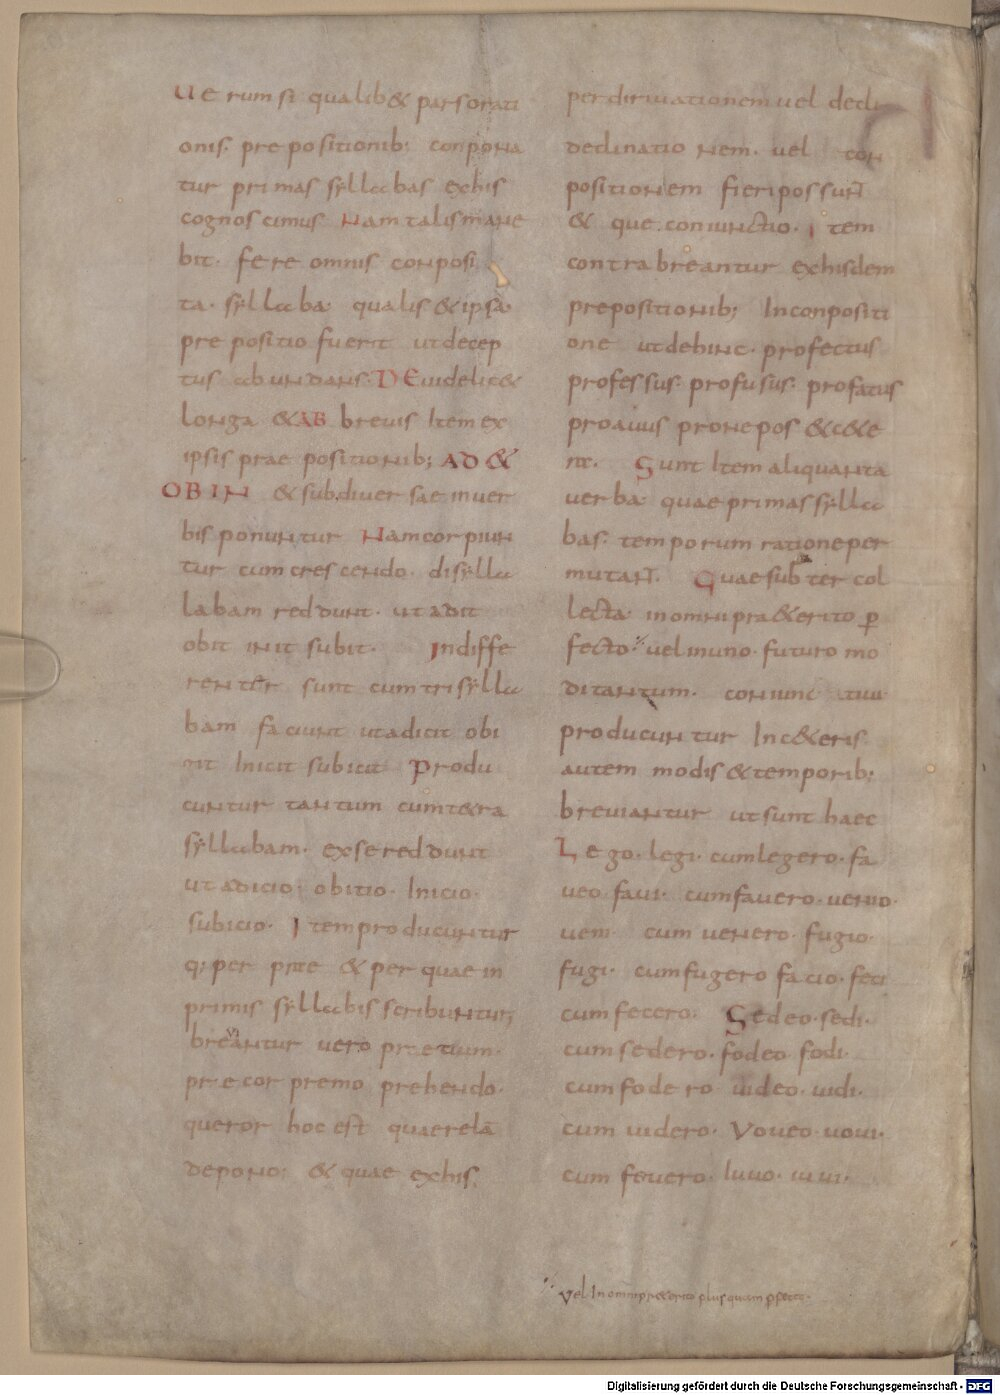 Ue rum si qualib& pars orati
onis. pre positionib; conpona
tur primas syllabas exhis
cognos cimus Nam talis mane
bit. fere omnis conposi
ta. syllaba qualis & ipsa
pre positio fuerit ut decep
tus abundans. DE videlic&
longa & AB brevis Item ex
ipsis prae positionib; AD &
OB IN & sub, diver sae in ver
bis ponuntur Nam corpiun
tur cum cres cendo. disylla
labam reddunt. ut adit
obit init subit. Indiffe
renter sunt cum trisylla
bam faciunt ut adicit obi
cit Inicit subicit Produ
cuntur tantum cum t&ra
syllabam. ex se reddunt
ut adicio. obitio. Inicio.
subicio. Item producuntur
q; per prae & per quae in
primis syllabis scribuntur;
breviantur vero pretium.
precor premo prehendo.
queror hoc est quaerelā
depono; & quae exhis.
per dirivationem vel decli
declinatio nem. vel con
positionem fieri possunt
& que coniunctio. Item
contra breantur exhisdem
prepositionib; In conpositi
one ut dehinc. profectus
professus. profusus. profatus
proavus pronepos & c&e
re. Sunt Item aliquanta
verba quae primas sylla
bas. temporum ratione per
mutant. Quae subter col
lecta in omni pra&erito p
fecto vel in uno. futuro mo
di tantum. coniunc tivi
producun tur In c&eris
autem modis & temporib;
breviantur ut sunt haec
Lego. legi. cum legero. fa
veo. favi. cum favero. venio.
veni. cum venero. fugio.
fugi. cum fugero facio. feci
cum fecero. Sedeo. sedi.
cum sedero. fodeo fodi.
cum fode ro video. vidi.
cum videro. Voveo. vovi.
cum fevero. Iuvo. iuvi.
Vel In omni pr&erito plusquam pfecto.
Digitalisierung gefördert durch die Deutsche Forschungsgemeinschaft - DFG